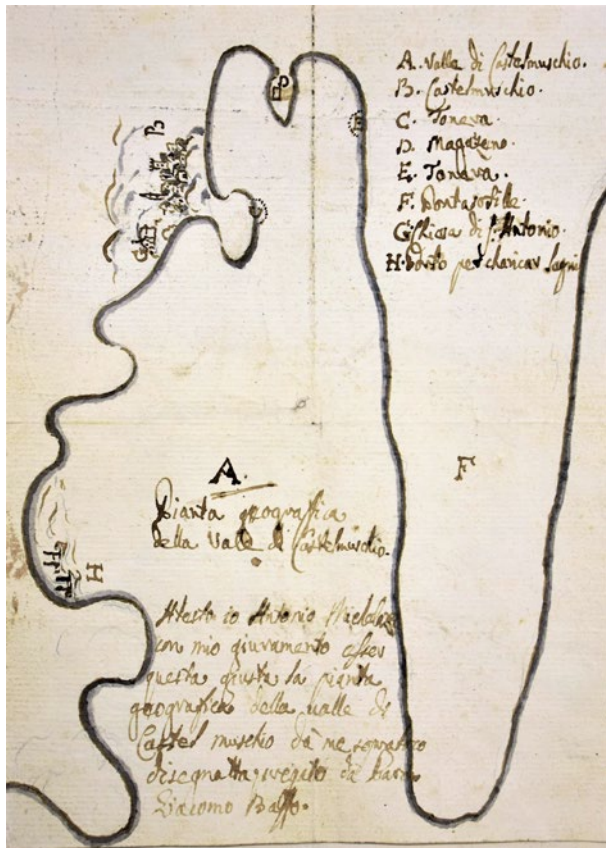 A. Valle di Castelmuschio.
B. Castelmuschio.
C. Tonava.
D. Magazeno.
E. Tonava.
F. Pontasosille.
G. Chiesa di S. Antonio.
H. Porto per charicar legni
B
D
E
C
G
H
F
A.
Pianta geografica
della Valle di Castelmuschio.
Atesto io Antonio
con mio giuramento esser
questa giusta la pianta
geografica della valle di
Castel muschio da me
disegnatta, pregato da
Giacomo Baffo.